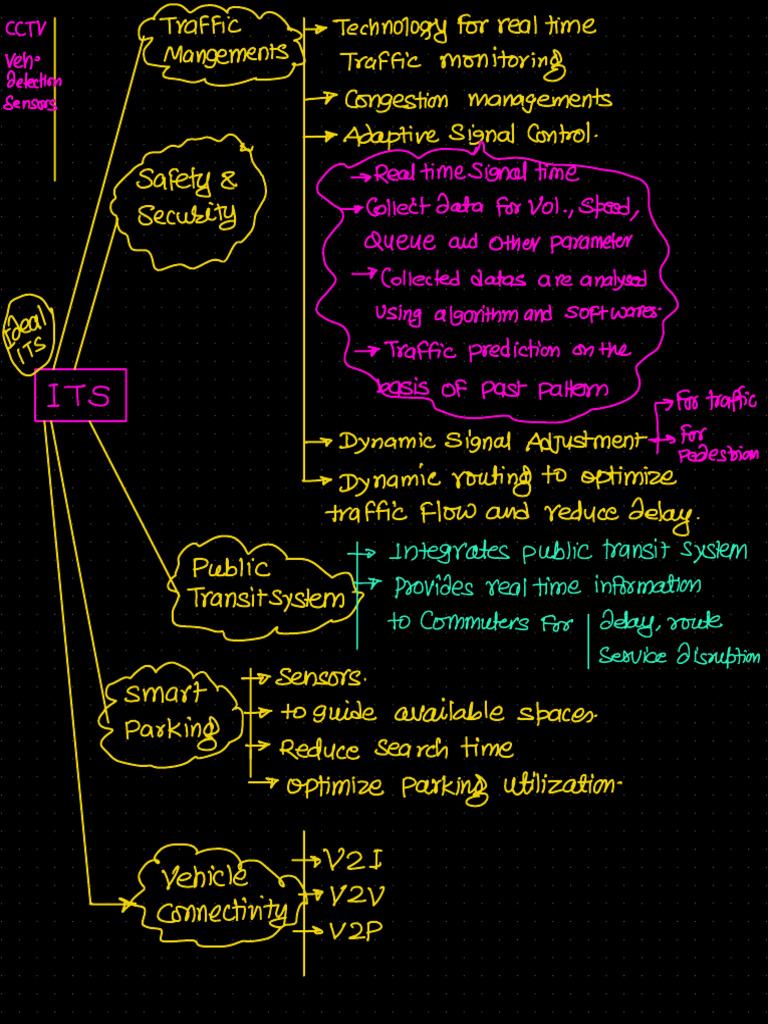 CCTV
Veh.
Detection
Sensors
Traffic
Mangements
→ Technology for real time
Traffic monitoring
→ Congestion managements
→ Adaptive Signal Control.
→ Real time Signal time
→ Collect data for Vol., Speed,
Queue and other parameter
→ Collected datas are analysed
using algorithm and softwares.
→ Traffic prediction on the
basis of past pattern
→ Dynamic Signal Adjustment
→ For traffic
→ For
Pedestrian
→ Dynamic routing to optimize
traffic flow and reduce delay.
Safety &
Security
Ideal
ITS
ITS
Public
Transit System
→ Integrates public transit system
→ Provides real time information
to Commuters for
delay, route
Service disruption
Smart
Parking
→ Sensors.
→ to guide available spaces.
→ Reduce search time
→ optimize parking utilization.
Vehicle
Connectivity
→ V2I
→ V2V
→ V2P